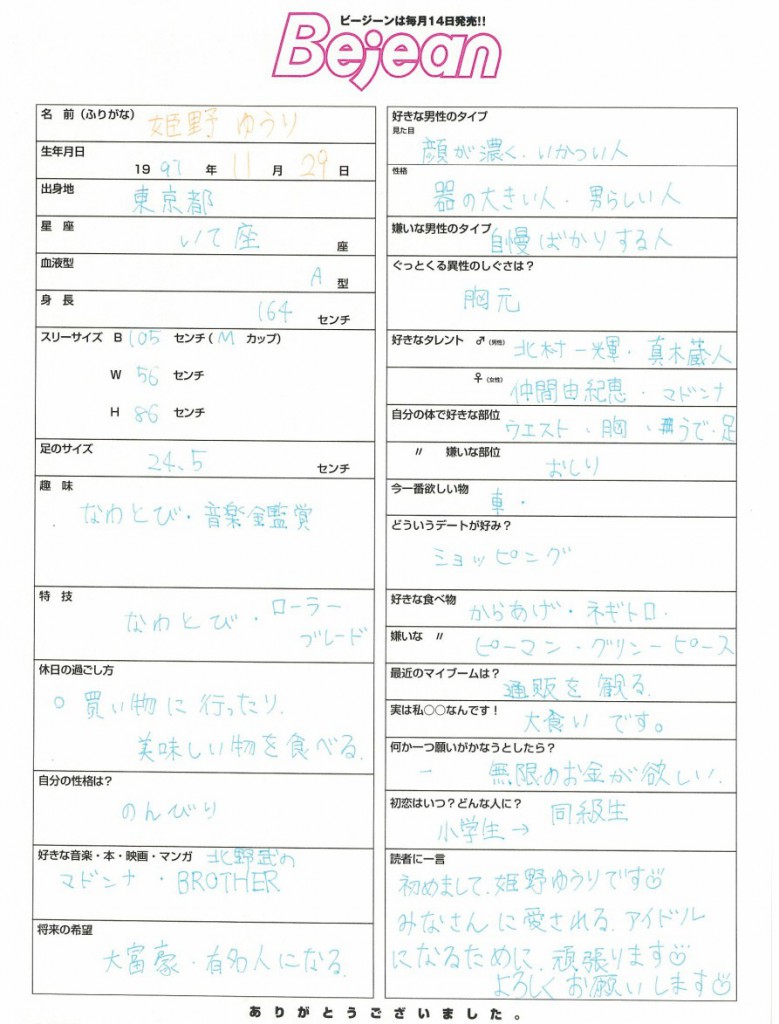 ビージーンは毎月14日発売!!
Bejean
名 前(ふりがな) 姫野 ゆうり
生年月日
1997年 11月 29日
出身地
東京都
星 座
いて座 座
血液型
A 型
身 長
164 センチ
スリーサイズ B 105 センチ( M カップ)
W 56 センチ
H 86 センチ
足のサイズ
24.5 センチ
趣 味
なわとび・音楽鑑賞
特 技
なわとび・ローラー
ブレード
休日の過ごし方
○ 買い物に行ったり
美味しい物を食べる.
自分の性格は?
のんびり
好きな音楽・本・映画・マンガ 北野武の
マドンナ・BROTHER
将来の希望
大富豪・有名人になる.
好きな男性のタイプ
見た目
顔が濃く、いかつい人
性格
器の大きい人・男らしい人
嫌いな男性のタイプ
自慢ばかりする人
ぐっとくる異性のしぐさは?
胸元
好きなタレント ♂(男性) 北村一輝・真木蔵人
♀(女性) 仲間由紀恵・マドンナ
自分の体で好きな部位
ウエスト、胸、うで・足
〃 嫌いな部位
おしり
今一番欲しい物
車・
どういうデートが好み?
ショッピング
好きな食べ物
からあげ・ネギトロ.
嫌いな 〃
ピーマン・グリーンピース
最近のマイブームは?
通販を観る.
実は私○○なんです!
大食いです。
何か一つ願いがかなうとしたら?
無限のお金が欲しい.
初恋はいつ?どんな人に?
小学生→ 同級生
読者に一言
初めまして、姫野ゆうりです
みなさんに愛される、アイドル
になるために、頑張ります
よろしくお願いします
ありがとうございました。